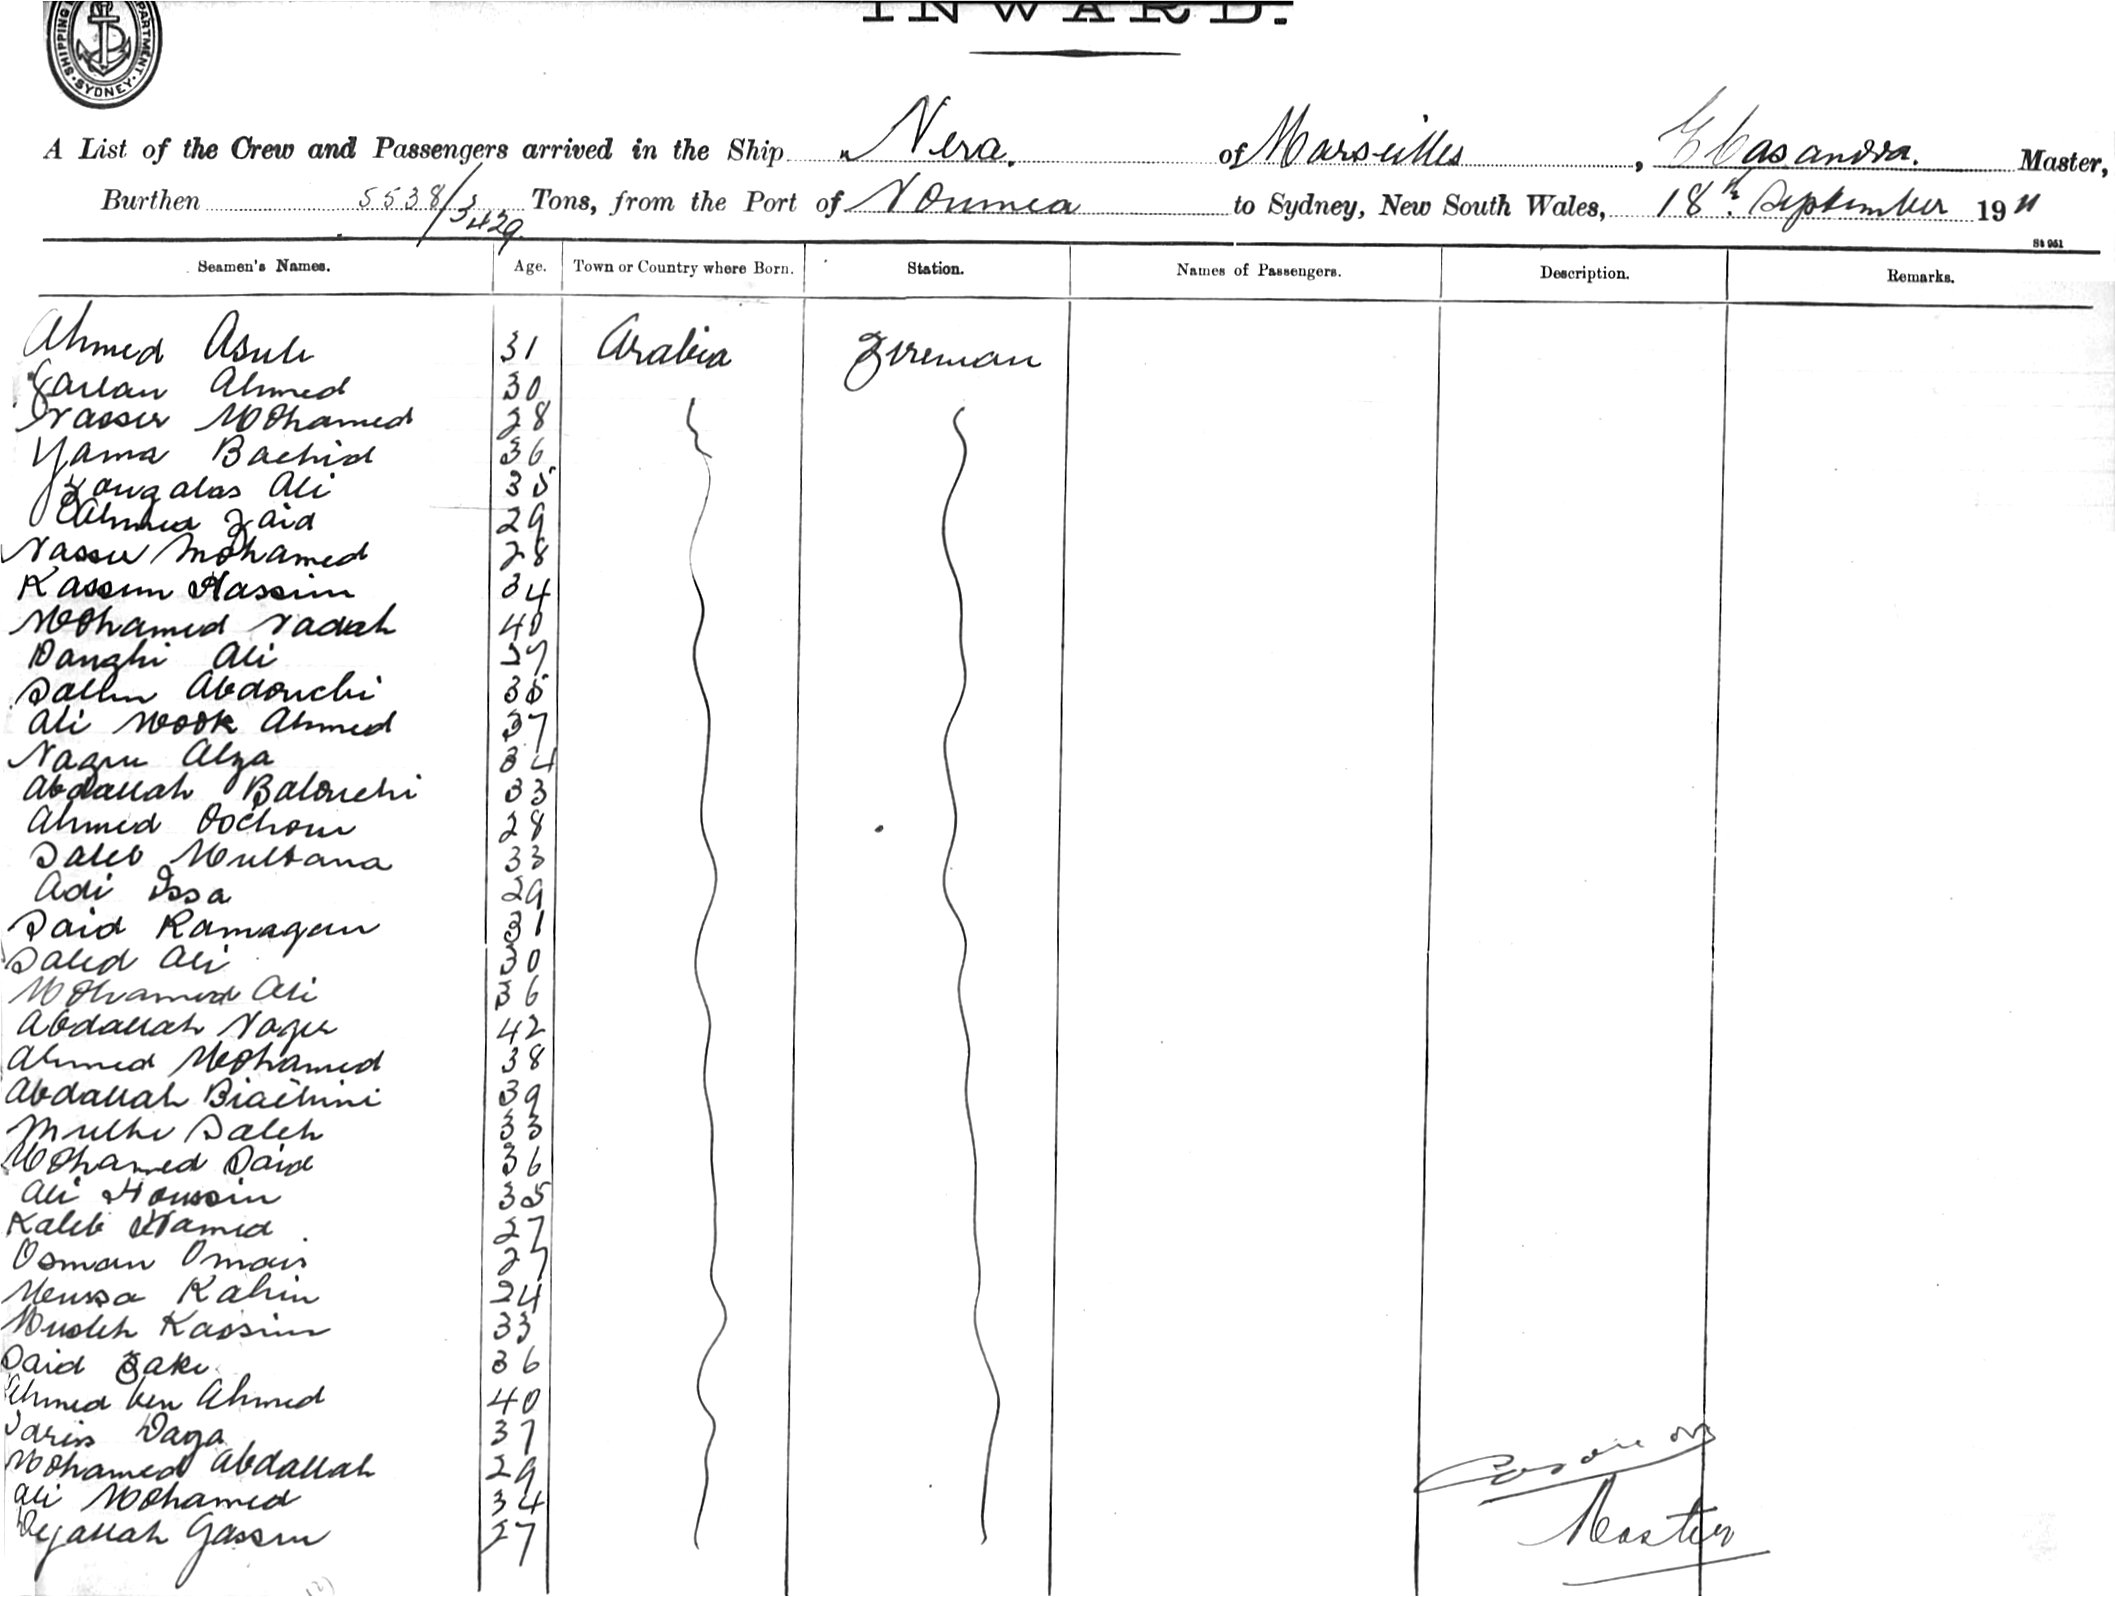 SHIPPING DEPARTMENT SYDNEY
INWARD.
A List of the Crew and Passengers arrived in the Ship Nera. of Marseilles, Casanova. Master,
Burthen 5538/3429 Tons, from the Port of Noumea to Sydney, New South Wales, 18th September 1911
St 951
Seamen's Names. Age. Town or Country where Born. Station. Names of Passengers. Description. Remarks.
Ahmed 31 Arabia Fireman
Ahmed 30
Nasser Mohamed 28
Yama Bachid 36
Ali 35
Ahmed Zaid 29
Nasser Mohamed 28
Kassem Hassim 34
Mohamed Nadah 40
Danghi Ali 37
Abdouchi 35
Ali Mook Ahmed 37
34
Abdallah Balouchi 33
Ahmed 28
Saleb Multana 33
Adi Issa 29
Said Ramagan 31
Saled Ali 30
Mohamed Ali 36
Abdallah Nager 42
Ahmed Mohamed 38
Abdallah 39
Saleh 33
Mohamed Said 36
Ali Houssin 35
Kaleb Hamed 27
Osman Omar 27
Moussa Kahin 24
Musleh Kassim 33
Said Zaki 36
Ahmed ben Ahmed 40
Idriss Daga 37
Mohamed Abdallah 29
Ali Mohamed 34
Gassem 27
Master